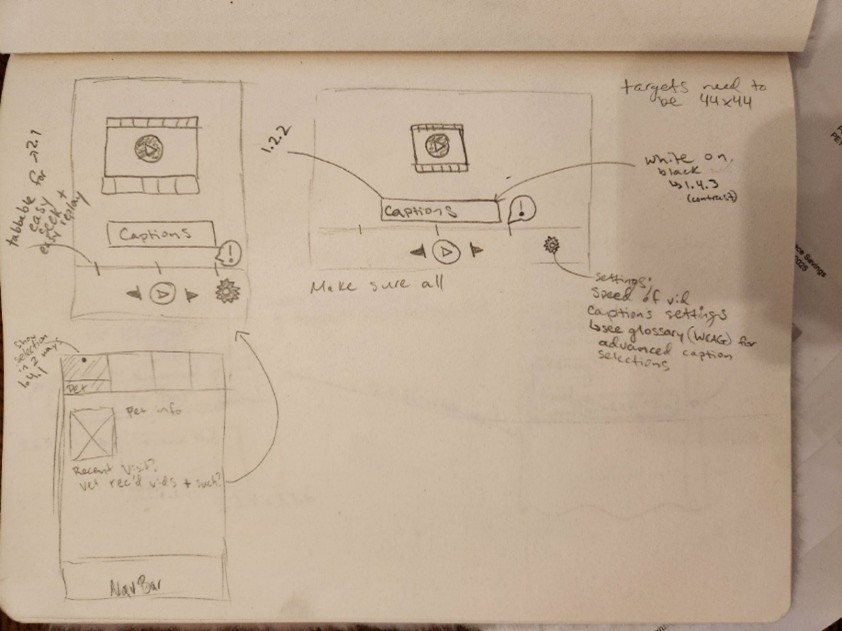 targets need to
be 44x44
1.2.2
white on
black
↳1.4.3
(contrast)
tabbable for →2.1
easy
seek +
replay
Captions
!
Captions
!
Make sure all
settings:
Speed of vid
Captions settings
↳see glossary (WCAG) for
advanced caption
selections
Show
selection
in 2 ways
↳1.4.1
pet
pet info
Recent Visit?
vet rec'd vids + such?
NavBar